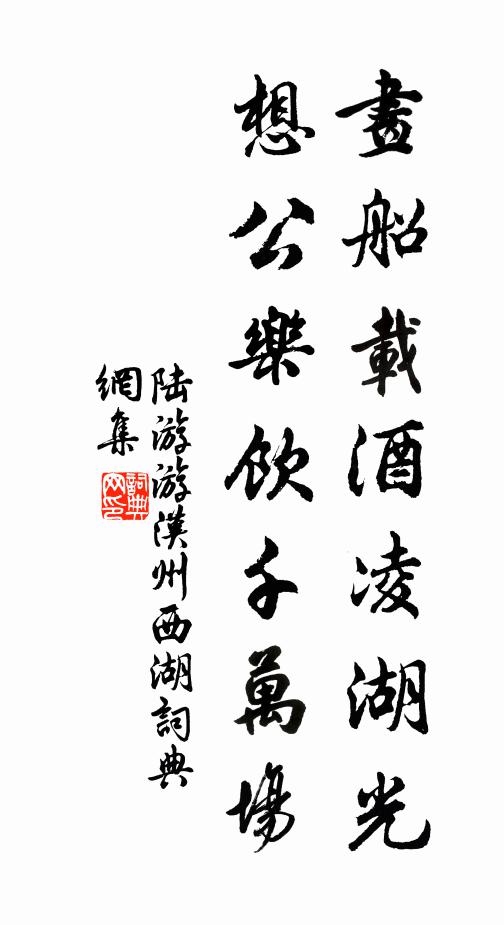 畫船載酒凌湖光
想公樂飲千萬場
陆游游漢州西湖詞典
網集
詞典网印